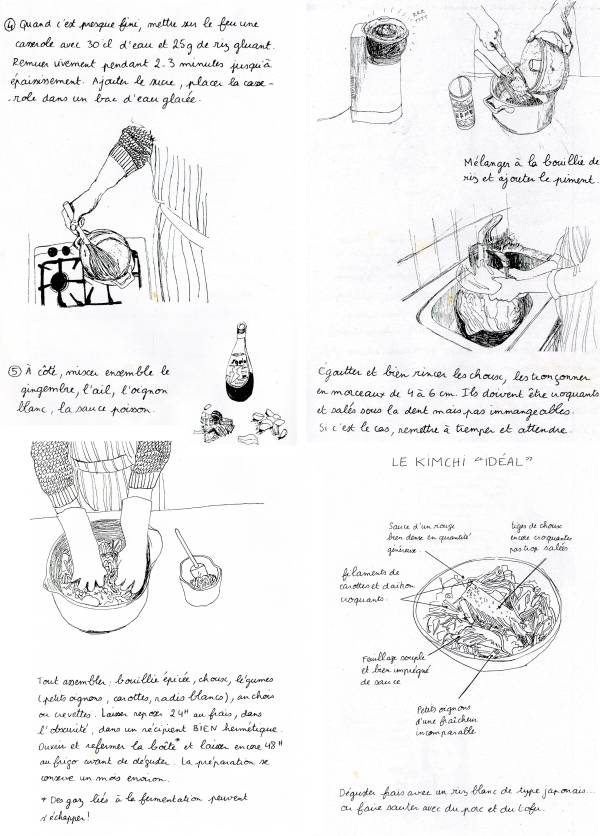 ④ Quand c'est presque fini, mettre sur le feu une
casserole avec 30 cl d'eau et 25g de riz gluant.
Remuer vivement pendant 2-3 minutes jusqu'à
épaississement. Ajouter le sucre, placer la casse-
-role dans un bac d'eau glacée.
Mélanger à la bouillie de
riz et ajouter le piment.
⑤ À côté, mixer ensemble le
gingembre, l'ail, l'oignon
blanc, la sauce poisson.
Égoutter et bien rincer les choux, les tronçonner
en morceaux de 4 à 6 cm. Ils doivent être croquants
et salés sous la dent mais pas immangeables.
Si c'est le cas, remettre à tremper et attendre.
Tout assembler : bouillie épicée, choux, légumes
(petits oignons, carottes, radis blancs), anchois
ou crevettes. Laisser reposer 24H au frais, dans
l'obscurité, dans un récipient BIEN hermétique.
Ouvrir et refermer la boîte* et laisser encore 48H
au frigo avant de déguster. La préparation se
conserve un mois environ.
* Des gaz liés à la fermentation peuvent
s'échapper!
LE KIMCHI "IDÉAL"
Sauce d'un rouge
bien dense en quantité
généreuse.
tiges de choux
encore croquantes
pas trop salées
filaments de
carottes et daikon
croquants.
Feuillage souple
et bien imprégné
de sauce
Petits oignons
d'une fraîcheur
incomparable
Déguster frais avec un riz blanc de type japonais...
ou faire sauter avec du porc et du tofu.